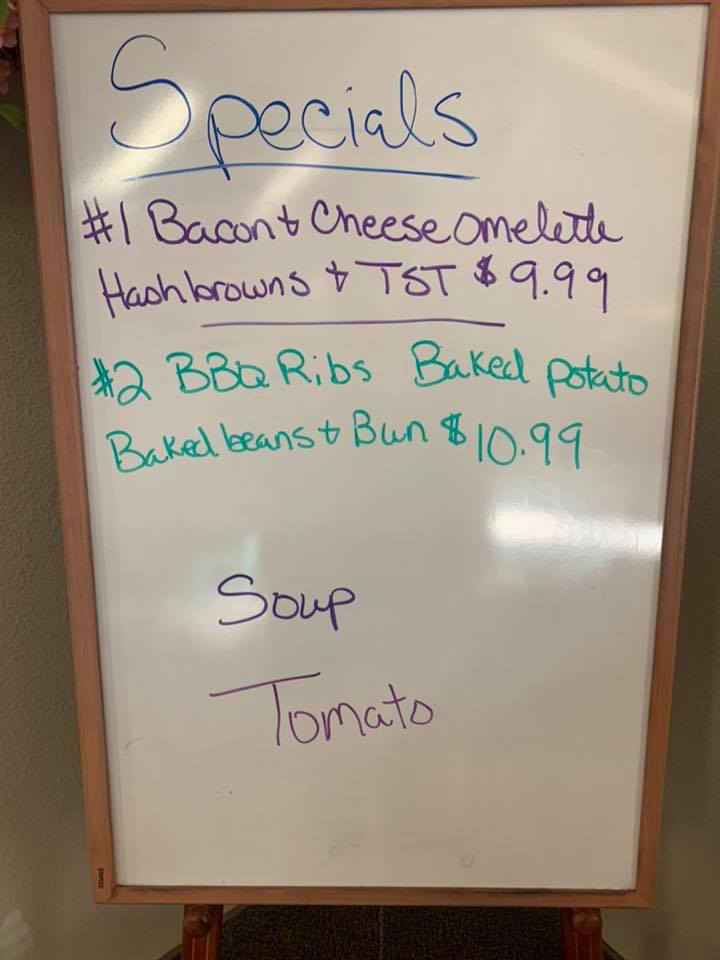 Specials
#1 Bacon + Cheese omelette
Hashbrowns + TST $9.99
#2 BBQ Ribs Baked potato
Baked beans + Bun $10.99
Soup
Tomato